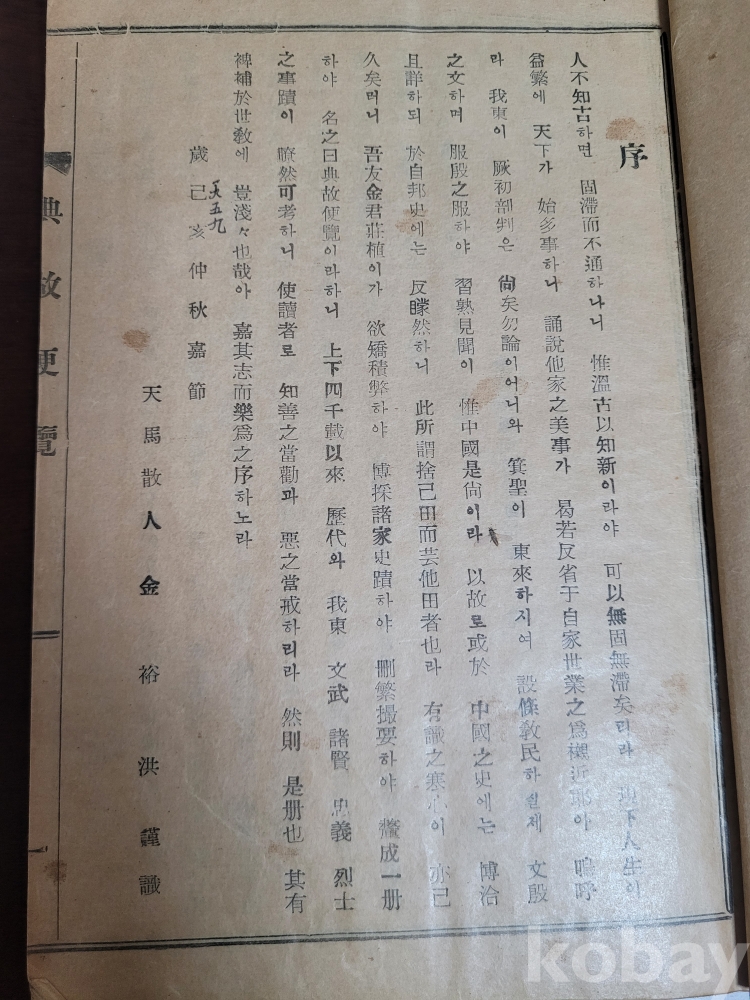 序
人不知古하면 固滯而不通하나니 惟溫古以知新이라야 可以無固無滯矣리라 下人生이
益繁에 天下가 始多事하니 誦說他家之美事가 曷若反省于自家世業之爲襯近耶아 嗚呼
라 我東이 厥初剖判은 尙矣勿論이어니와 箕聖이 東來하지여 設條敎民하실제 文殷
之文하며 服殷之服하야 習熟見聞이 惟中國是尙이라 以故로 或於 中國之史에는 博洽
且詳하되 於自邦史에는 反矇然하니 此所謂捨己田而芸他田者也라 有識之寒心이 亦已
久矣러니 吾友金君莊植이가 欲矯積弊하야 博採諸家史蹟하야 刪繁撮要하야 釐成一册
하야 名之曰典故便覽이라하니 上下四千載以來 歷代와 我東 文武 諸賢 忠義 烈士
之事蹟이 瞭然可考하니 使讀者로 知善之當勸과 惡之當戒하리라 然則 是册也 其有
裨補於世敎에 豈淺々也哉아 嘉其志而樂爲之序하노라
歲己亥仲秋嘉節
五九
天馬散人 金裕洪 謹識
典故便覽
kobay